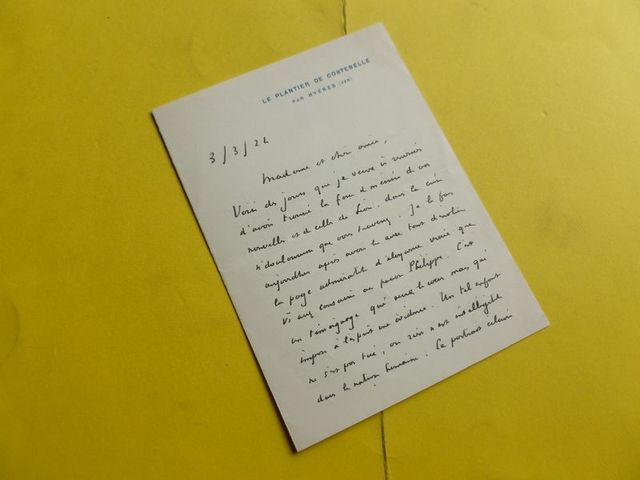 LE PLANTIER DE COSTEBELLE
PAR HYÈRES (VAR)
3/3/24
Madame et chère amie,
Voici des jours que je veux vous remercier
d'avoir trouvé la force de me donner de vos
nouvelles et de celles de Léon, dans la crise
si douloureuse que vous traversez. Je le fais
aujourd'hui après avoir lu avec tant d'émotion
la page admirable d'éloquence vraie que
vous consacrée au pauvre Philippe. C'est
un témoignage qui vient du cœur mais qui
impose à l'esprit une évidence. Un tel enfant
ne s'est pas tué, ou rien n'est intelligible
dans la nature humaine. Le portrait